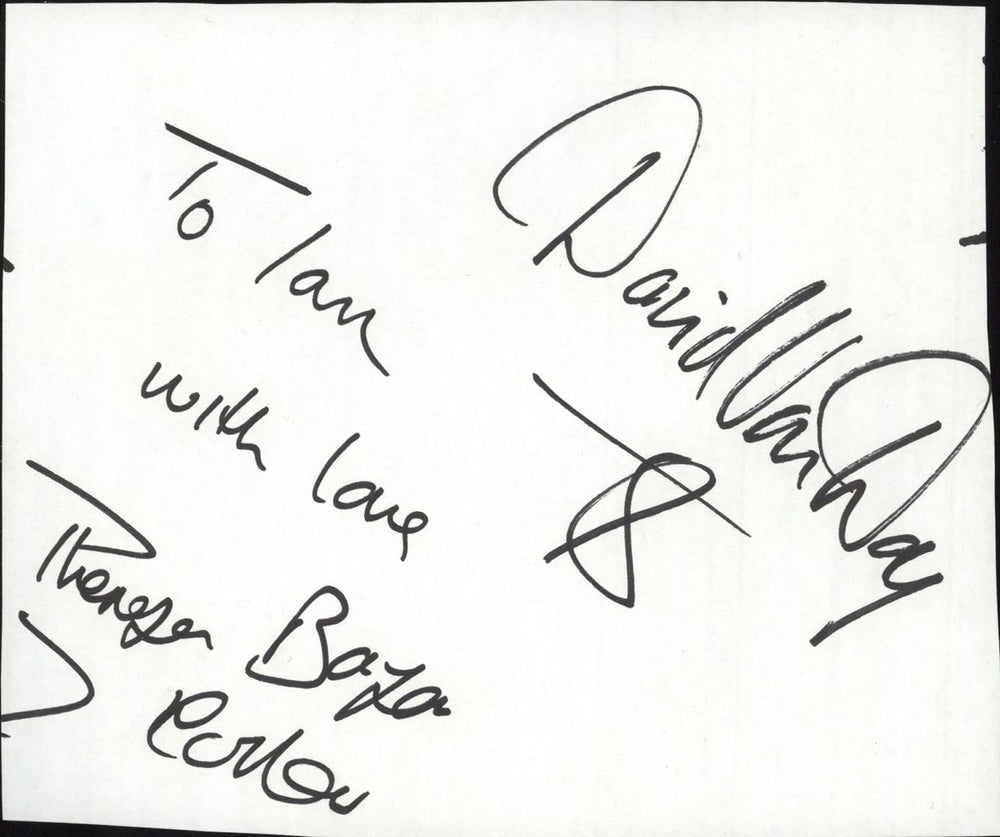 To Ian
with love
Thereza Bazar
David Van Day